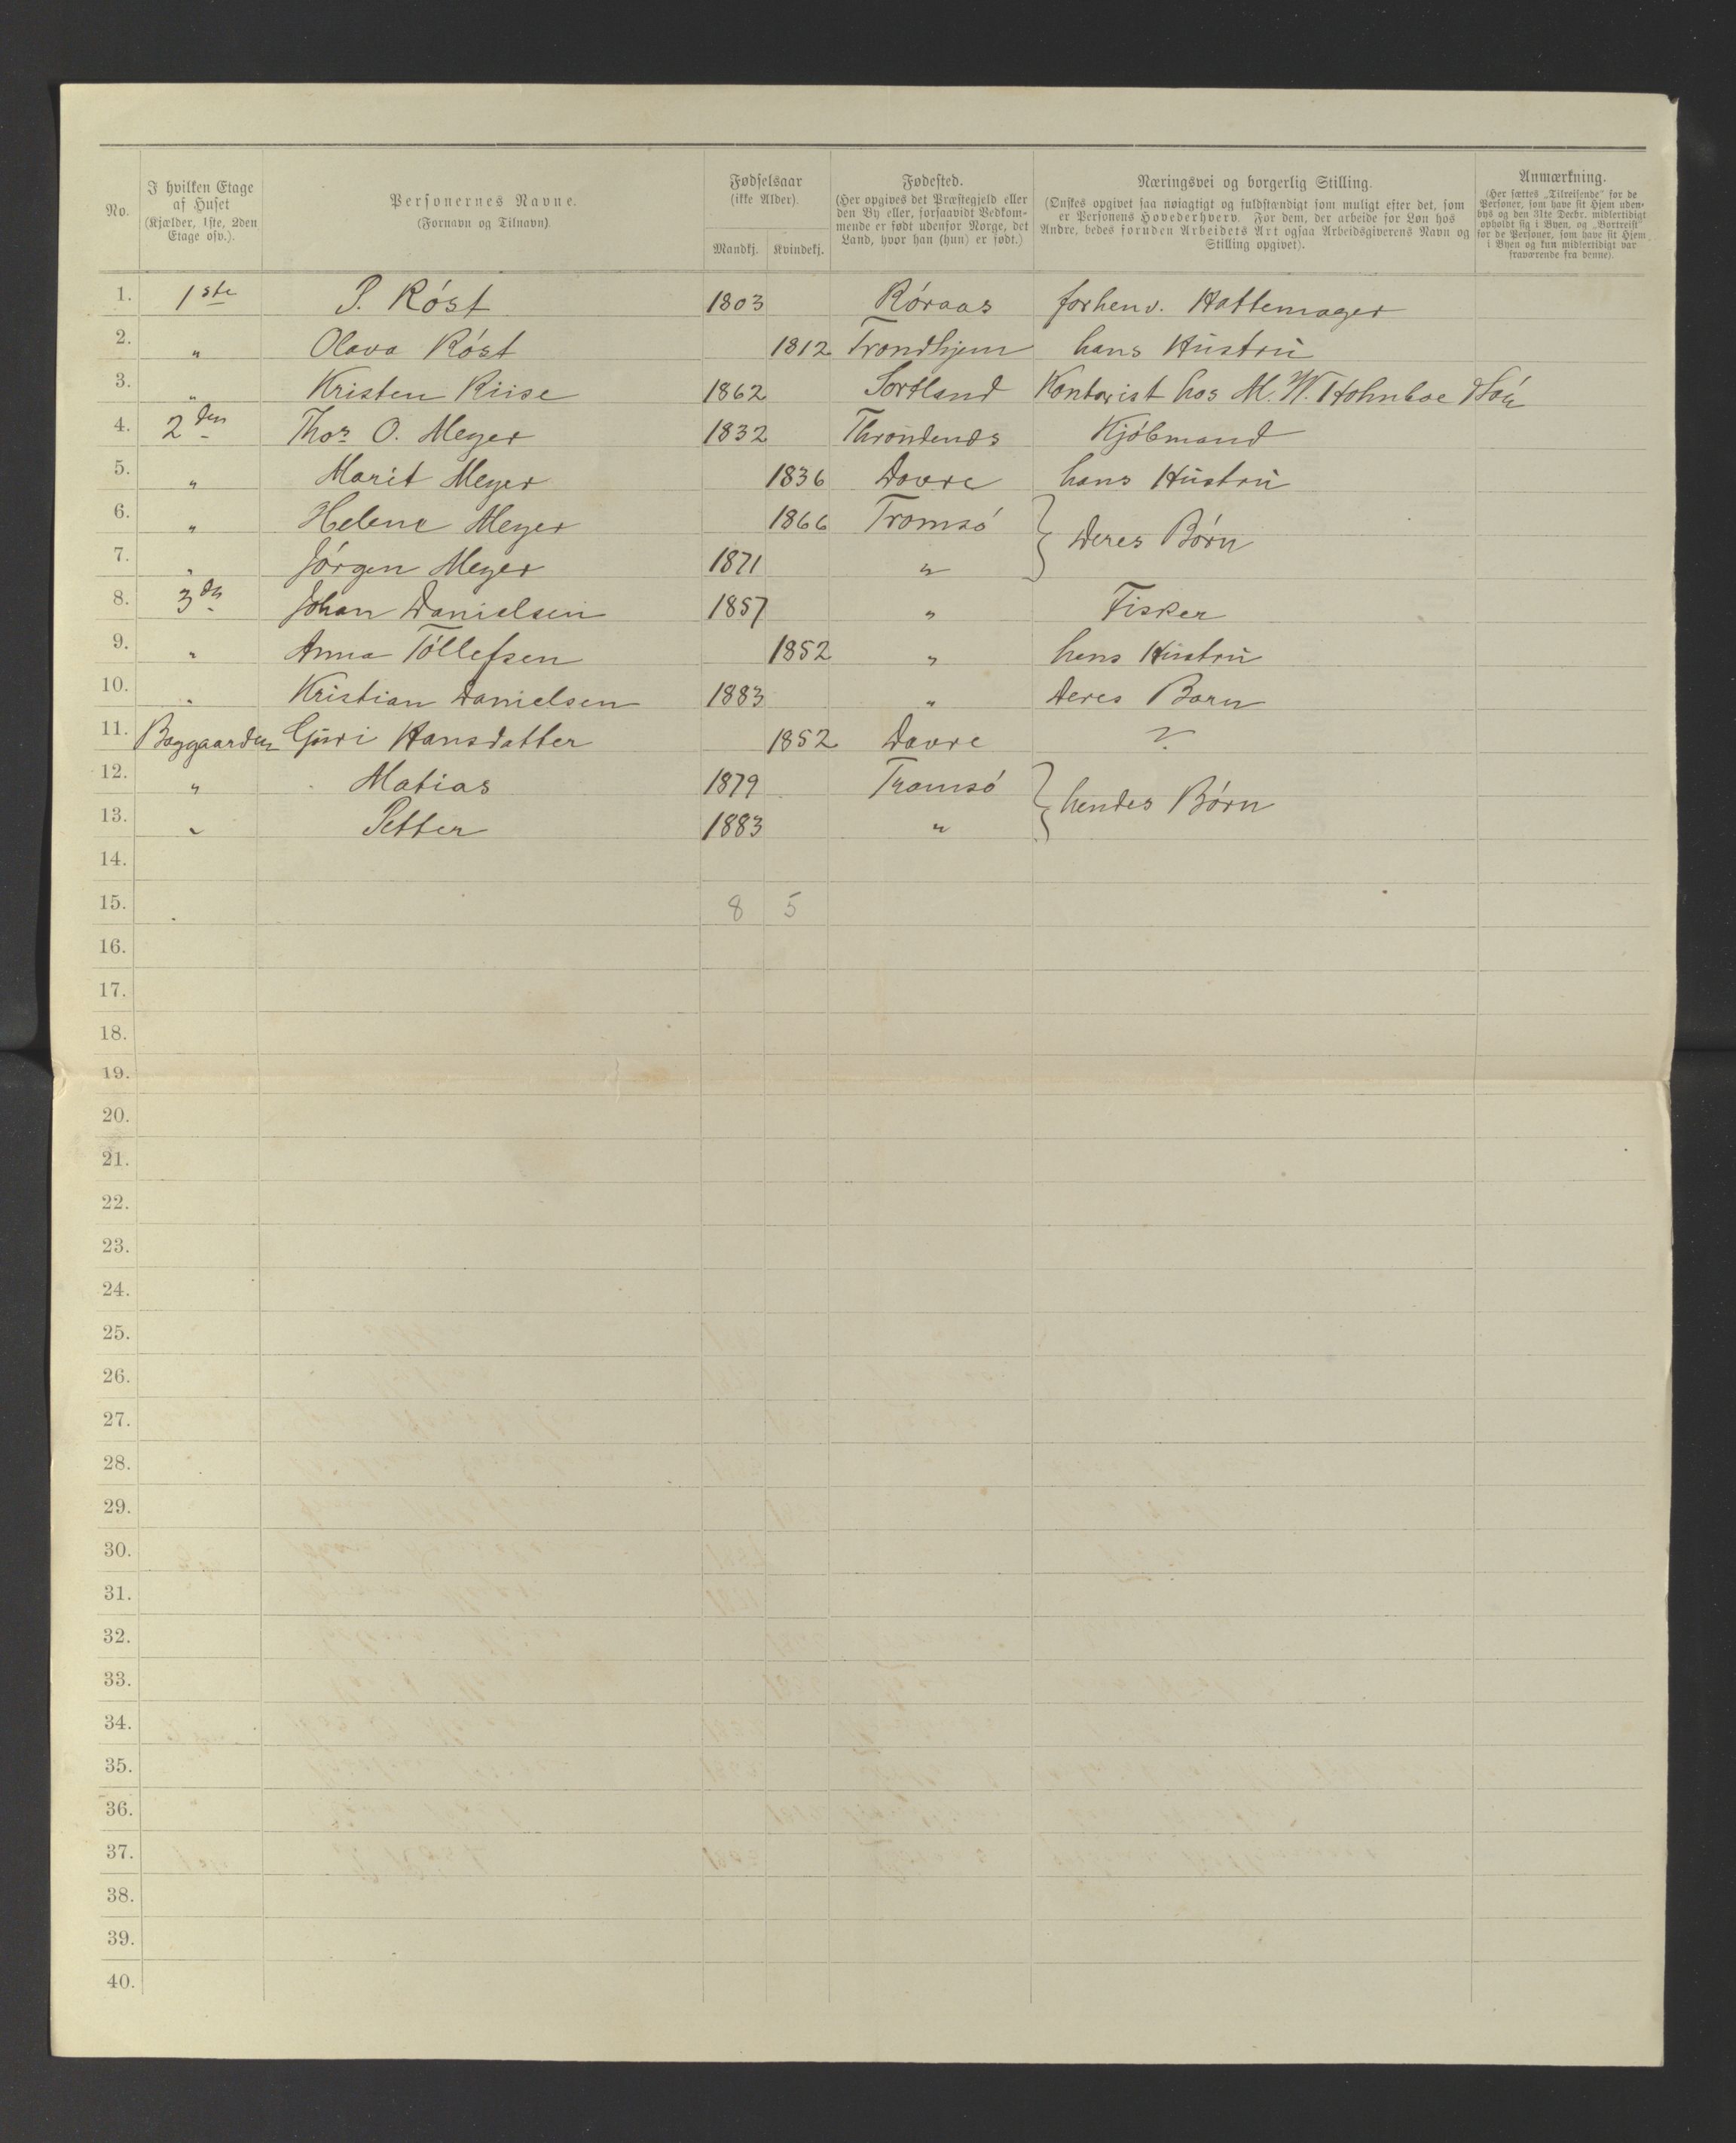 No.
I hvilken Etage
af Huset
(Kjælder, 1ste, 2den
Etage osv.).
Personernes Navne.
(Fornavn og Tilnavn).
Fødselsaar
(ikke Alder).
Mandkj. Kvindekj.
Fødested.
(Her opgives det Præstegjeld eller
den By eller, forsaavidt Vedkom-
mende er født udenfor Norge, det
Land, hvor han (hun) er født.)
Næringsvei og borgerlig Stilling.
(Ønskes opgivet saa nøiagtigt og fuldstændigt som muligt efter det, som
er Personens Hovederhverv. For dem, der arbeide for Løn hos
Andre, bedes foruden Arbeidets Art ogsaa Arbeidsgiverens Navn og
Stilling opgivet).
Anmærkning.
(Her sættes „Tilreisende" for de
Personer, som have sit Hjem uden-
bys og den 31te Decbr. midlertidigt
opholdt sig i Byen, og „Bortreist"
for de Personer, som have sit Hjem
i Byen og kun midlertidigt var
fraværende fra denne).
1. 1ste P. Röst 1803 Röraas forhenv. Hattemager
2. " Olava Röst 1812 Trondhjem hans Hustru
3. " Kristen Riise 1862 Sortland Kontorist hos M. W. Holmboe &
4. 2den Thos O. Meyer 1832 Throndenæs Kjöbmand
5. " Marit Meyer 1836 Dovre hans Hustru
6. " Helene Meyer 1866 Tromsö } Deres Börn
7. " Jörgen Meyer 1871 "
8. 3de Johan Danielsen 1857 " Fisker
9. " Anna Töllefsen 1852 " hans Hustru
10. " Kristian Danielsen 1883 " deres Barn
11. Baggaarden Guri Hansdatter 1852 Dovre ?
12. " Matias 1879 Tromsö } hendes Börn
13. " Petter 1883 "
14.
15. 8 5
16.
17.
18.
19.
20.
21.
22.
23.
24.
25.
26.
27.
28.
29.
30.
31.
32.
33.
34.
35.
36.
37.
38.
39.
40.